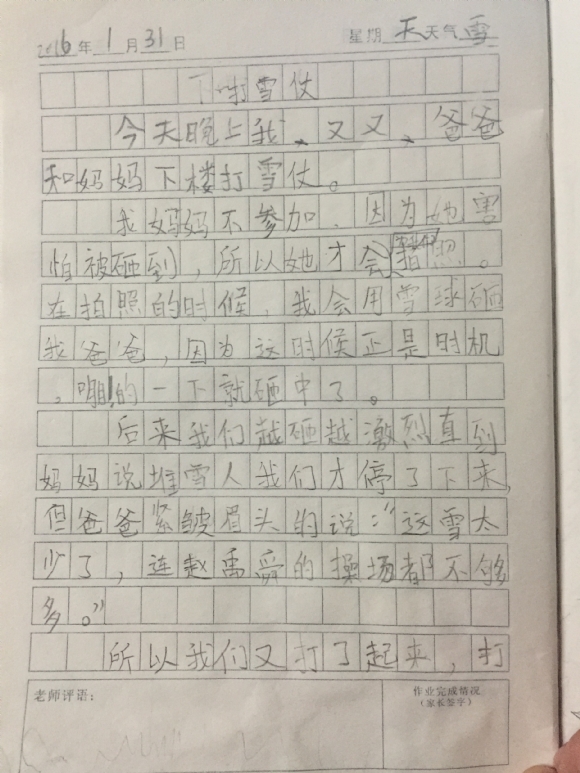 2016年1月31日 星期天天气雪
下午打雪仗
今天晚上我、又又、爸爸
和妈妈下楼打雪仗。
我妈妈不参加、因为她害
怕被砸到，所以她才会拍照。
在拍照的时候，我会用雪球砸
我爸爸，因为这时候正是时机
，嘣的一下就砸中了。
后来我们越砸越激烈直到
妈妈说堆雪人我们才停了下来，
但爸爸紧皱眉头的说：“这雪太
少了，连赵禹舜的操场都不够
多。”
所以我们又打了起来，打
老师评语：
作业完成情况
（家长签字）